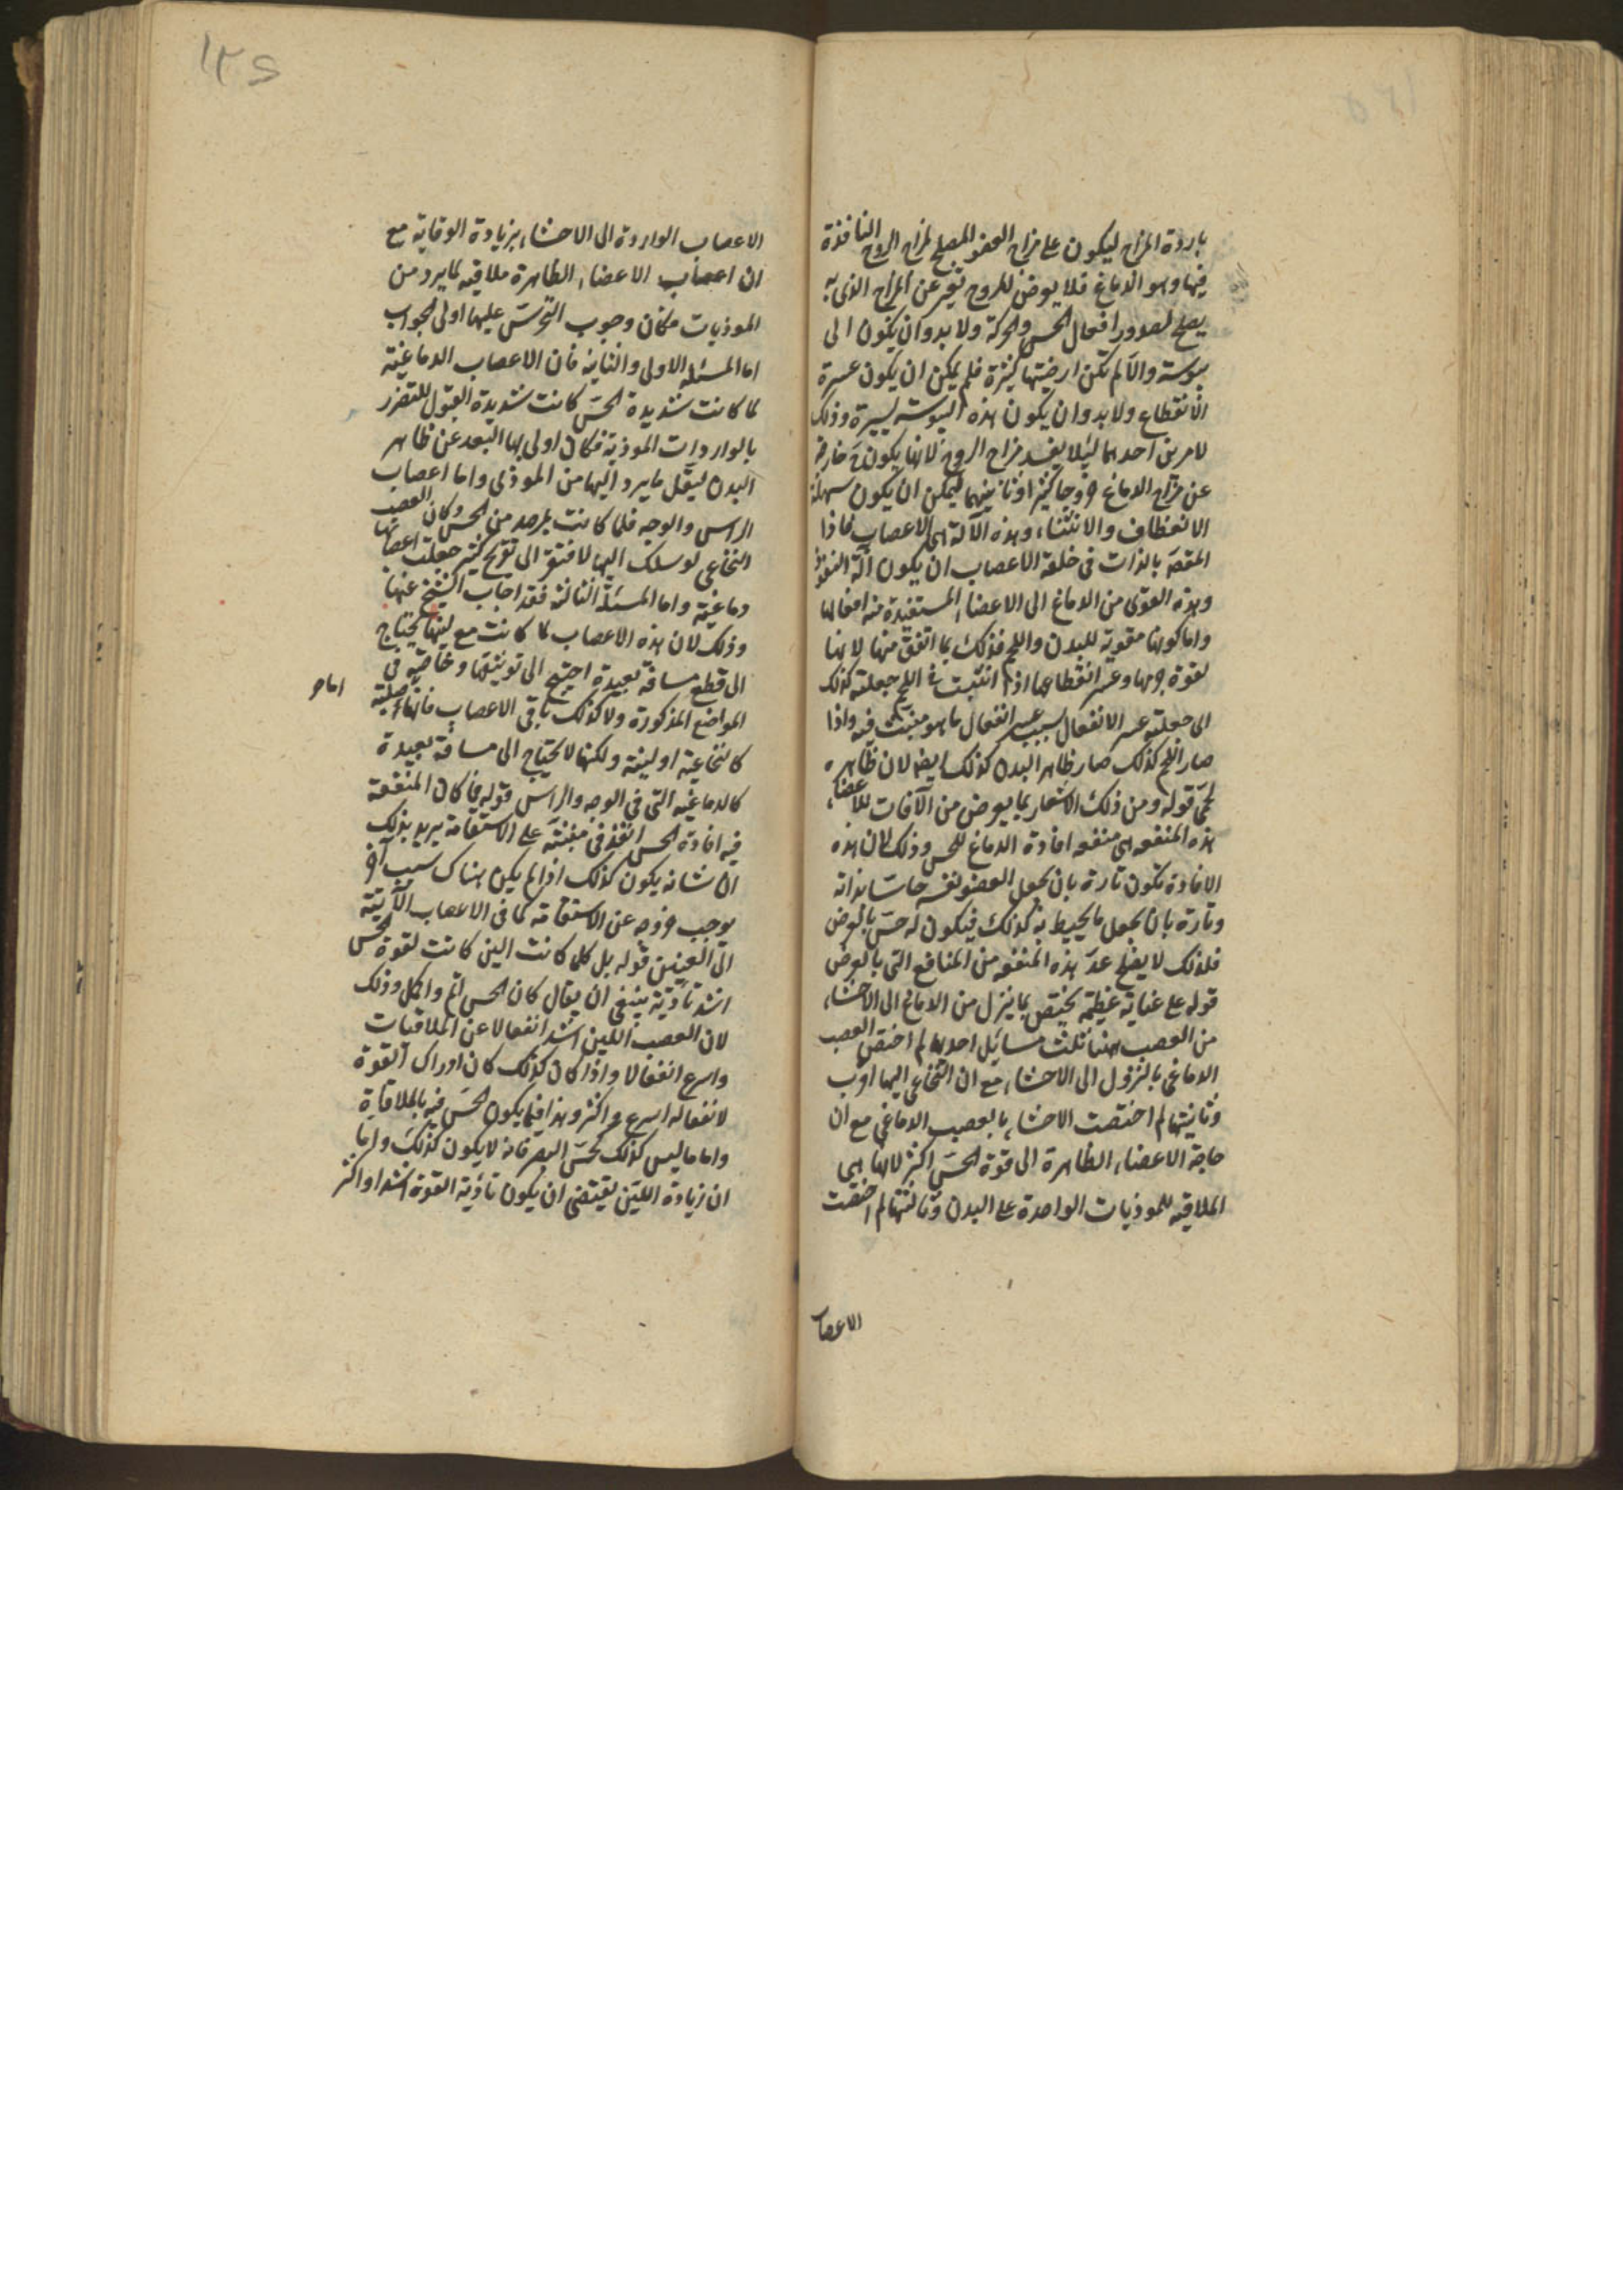 باردة المزاج ليكون على مزاج العضو المصلح لمزاج الروح النافذة
فيها وهو الدماغ فلا يعرض للروح تغير عن المزاج الذى به
يصلح لصدور افعال الحس والحركة ولا بد وان يكون الى
يبوسة والا لم تكن ارضيتها كثيرة فلم يمكن ان يكون عسرة
الانقطاع ولا بد وان يكون هذه اليبوسة يسيرة وذلك
لامرين احدهما ليلا يفسد مزاج الروح لانها يكون ح خارجة
عن مزاج الدماغ خروجا كثيرا وثانيهما ليمكن ان يكون سهلة
الانعطاف والانثناء وهذه الآلة هى الاعصاب فاذا
المقصد بالذات فى خلقة الاعصاب ان يكون آلة لنفوذ
هذه القوى من الدماغ الى الاعضاء المستفيدة منه افعالها
واما كونها مقوية للبدن واللحم فذلك بما اتفق منها لانها
لقوة جرمها وعسر انقطاعها اذا انبثت فى اللحم جعلته كذلك
الى جعلته عسر الانفعال بسبب عسر انفعال ما هو منبث فيه واذا
صار اللحم كذلك صار ظاهر البدن كذلك ايضا لان ظاهره
لحمى قوله ومن ذلك الاشعار بما يعرض من الآفات للاعضاء
هذه المنفعه هى منفعه افادة الدماغ للحس وذلك لان هذه
الافادة تكون تارة بان يجعل العضو نفسه حاسا بذاته
وتارة بان يجعل ما يحيط به كذلك فيكون له حس بالعرض
فلذلك لا يصلح عد هذه المنفعه من المنافع التى بالعرض
قوله على عناية عظيمة يختص بما ينزل من الدماغ الى الاحشاء
من العصب ههنا ثلث مسائل احدها لم اختص العصب
الدماغى بالنزول الى الاحشاء مع ان النخاعى اليها اقرب
وثانيتها لم اختصت الاحشاء بالعصب الدماغى مع ان
حاجة الاعضاء الظاهرة الى قوة الحس اكثر لانها هى
الملاقيه للموذيات الواردة على البدن وثالثتها لم اختصت
الاعصاب
١٢٥
الاعصاب الواردة الى الاحشاء بزيادة الوقاية مع
ان اعصاب الاعضاء الظاهرة ملاقيه لما يرد من
الموذيات فكان وجوب التحرس عليها اولى الجواب
اما المسئلة الاولى والثانية فان الاعصاب الدماغية
لما كانت شديدة الحس كانت شديدة القبول للتضرر
بالواردات الموذية فكان اولى بها البعد عن ظاهر
البدن ليقل ما يرد اليها من الموذى واما اعصاب
الراس والوجه فلما كانت بمرصد من الحس وكان العصب
النخاعى لو سلك اليها لافتقر الى تعريج كثير جعلت اعصابها
دماغية واما المسئلة الثالثة فقد اجاب الشيخ عنها
وذلك لان هذه الاعصاب لما كانت مع لينها تحتاج
الى قطع مسافة بعيدة احتيج الى توثيقها وخاصة فى
المواضع المذكورة ولا كذلك باقى الاعصاب فانها اما صلبة
كالنخاعية او لينة ولكنها لا تحتاج الى مسافة بعيدة
كالدماغيه التى فى الوجه والراس قوله فما كان المنفعة
فيه افادة الحس انفذ فى منبته على الاستقامة يريد بذلك
ان شانه يكون كذلك اذا لم يكن هناك سبب آخر
يوجب خروجه عن الاستقامة كما فى الاعصاب الآتية
الى العينين قوله بل كلما كانت الين كانت لقوة الحس
اشد تأدية ينبغى ان يقال كان الحس اتم واكمل وذلك
لان العصب اللين اشد انفعالا عن الملاقيات
واسرع انفعالا واذا كان كذلك كان ادراك القوة
لانفعاله اسرع واكثر وهذا فيما يكون الحس فيه بالملاقاة
واما ما ليس كذلك كحس البصر فانه لا يكون كذلك واما
ان زيادة اللين يقتضى ان يكون تادية القوة اشد او اكثر